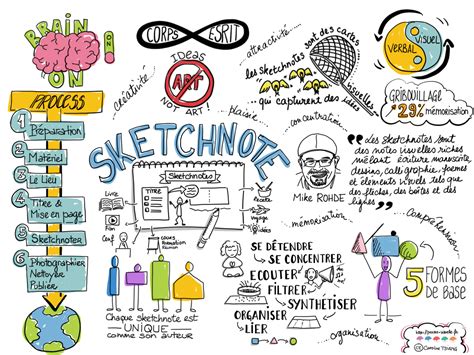 BRAIN
ON
ON
PROCESS
1 Préparation
2 Matériel
3 Le Lieu
4 Titre &
Mise en page
5 Sketchnoter
6 Photographier
Nettoyer
Publier
CORPS ESPRIT
IDEAS
ART
NOT ART!
créativité
attractivité...
plaisir
concentration
les sketchnotes sont des cartes
visuelles
qui capturent des idées
VERBAL
VISUEL
GRIBOUILLAGE
29%
mémorisation
SKETCHNOTE
Sketchnotes
Titre
Livre
Film
Conf
cours
formation
Réunion
Mike ROHDE
"Les Sketchnotes sont
des notes visuelles riches
mêlant écriture manuscrite,
dessins, calligraphie, formes
et éléments visuels tels que
des flèches, des boîtes et des
lignes"
mémorisation
compréhension
SE DÉTENDRE
SE CONCENTRER
ECOUTER
FILTRER
SYNTHÉTISER
ORGANISER
LIER
organisation
Chaque sketchnote est
UNIQUE
comme son auteur
5 FORMES
DE BASE